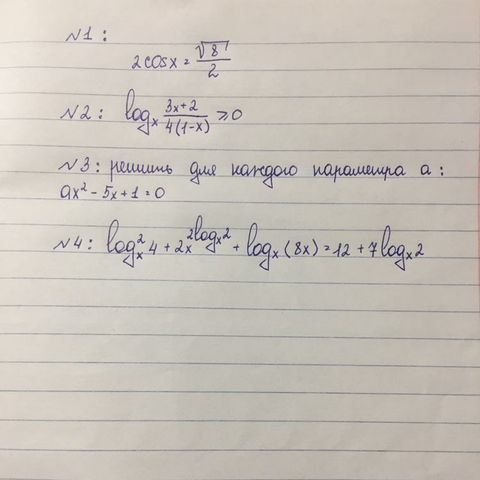 №1:
2cosx = √8/2
№2: logₓ (3x+2)/(4(1-x)) ≥ 0
№3: решить для каждого параметра a:
ax² - 5x + 1 = 0
№4: logₓ² 4 + 2x^(2logₓ2) + logₓ(8x) = 12 + 7logₓ2